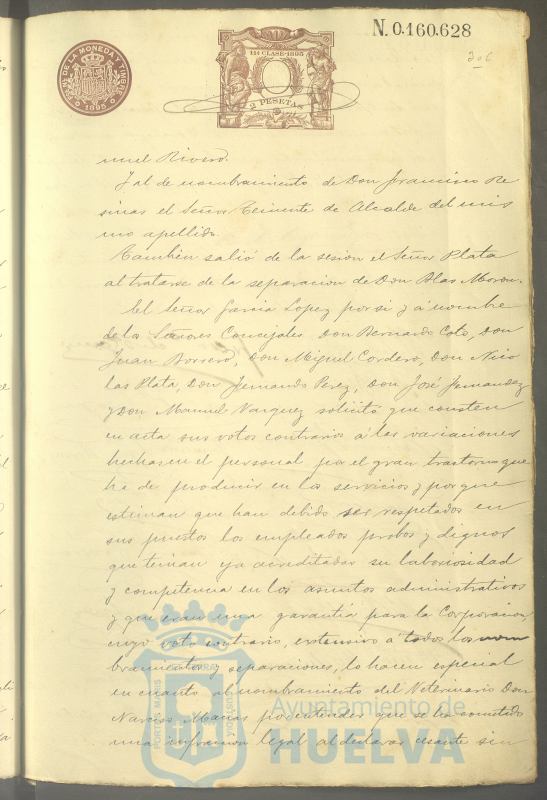 N. 0.160.628
306
FAB. DE LA MONEDA Y TIMBRE
1895
11ª CLASE-1895
2 PESETAS
nuel Rivero.
Y al de nombramiento de Don Francisco Re
sinas el Señor Teniente de Alcalde del mis
mo apellido.
También salió de la sesion el Señor Plata
al tratarse de la separacion de Don Blas Moron.
El Señor Garcia Lopez por si y á nombre
de los Señores Concejales Don Bernardo Coto, Don
Juan Borrero, Don Miguel Cordero, Don Nico
las Plata, Don Fernando Perez, Don José Fernandez
y Don Manuel Vazquez solicitó que consten
en acta sus votos contrarios á las variaciones
hechas en el personal por el gran trastorno que
ha de producir en los servicios y porque
estiman que han debido ser respetados en
sus puestos los empleados probos y dignos
que tenian ya acreditadas su laboriosidad
y competencia en los asuntos administrativos
y que eran una garantia para la Corporacion,
cuyo voto contrario, extensivo á todos los nom
bramientos y separaciones, lo hacen especial
en cuanto al nombramiento del Veterinario Don
Narciso Mañas por entender que se ha cometido
una infraccion legal al declarar cesante sin
PORTUS MARIS
ET TERRÆ
CUSTODIA
Ayuntamiento de
HUELVA